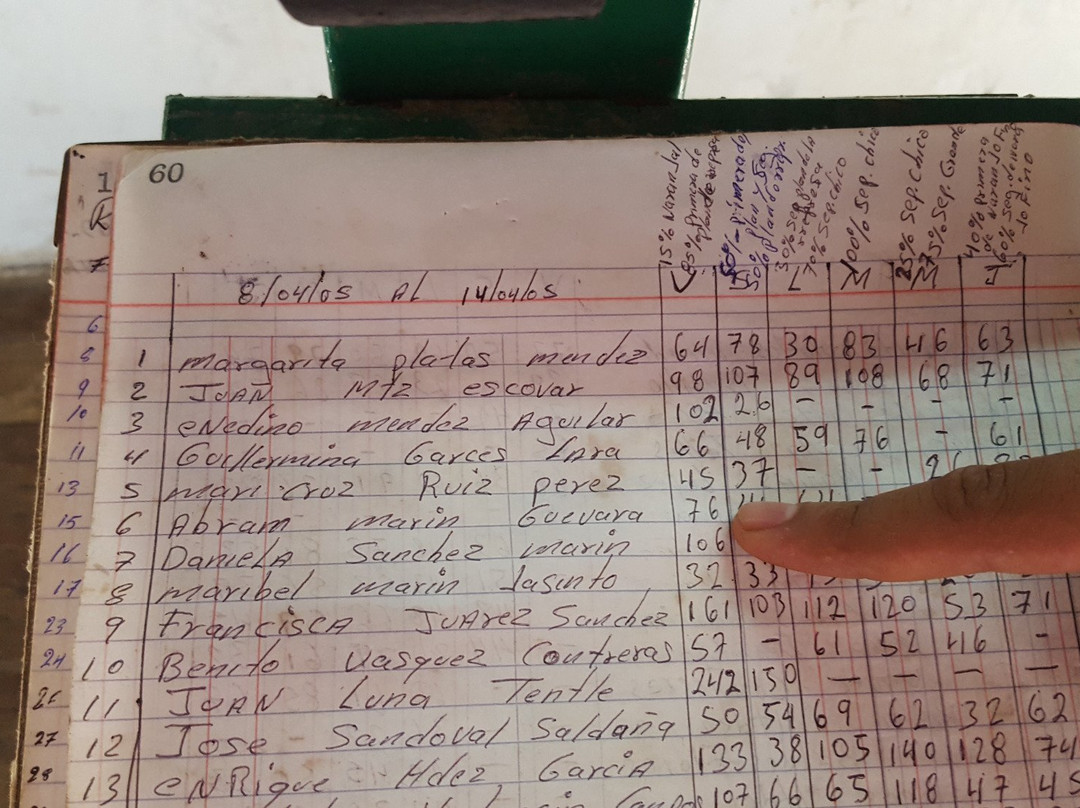 60
15% Naranja
85% primera de
50% primera de
50% plan y 5a
30% seg. plandela
70% Sep. chico
100% Sep. chico
25% Sep. Chico
75% Sep. Grande
40% primera
de Naranjo Fi
60% Seg. de naranjo Fino
1
R
7
8/04/05 AL 14/04/05
V L M M J
6
8 1 margarita platas mendez 64 78 30 83 46 63
9 2 JUAÑ Mtz escovar 98 107 89 108 68 71
10 3 eNedino mendez Aguilar 102 26 - - - -
11 4 Guillermina Garces LAra 66 48 59 76 - 61
13 5 mari-cruz Ruiz perez 45 37 - -
15 6 Abram marin Guevara 76
16 7 DanieLA Sanchez marin 106
17 8 maribel marin Jasinto 32 33
23 9 FranciscA JUArez Sanchez 161 103 112 120 53 71
24 10 Benito Vasquez Contreras 57 - 61 52 46 -
26 11 JUAN Luna Tentle 242 150 - - - -
27 12 Jose Sandoval Saldaña 50 54 69 62 32 62
28 13 eNRique Hdez GarciA 133 38 105 140 128 74
107 66 65 118 47 45